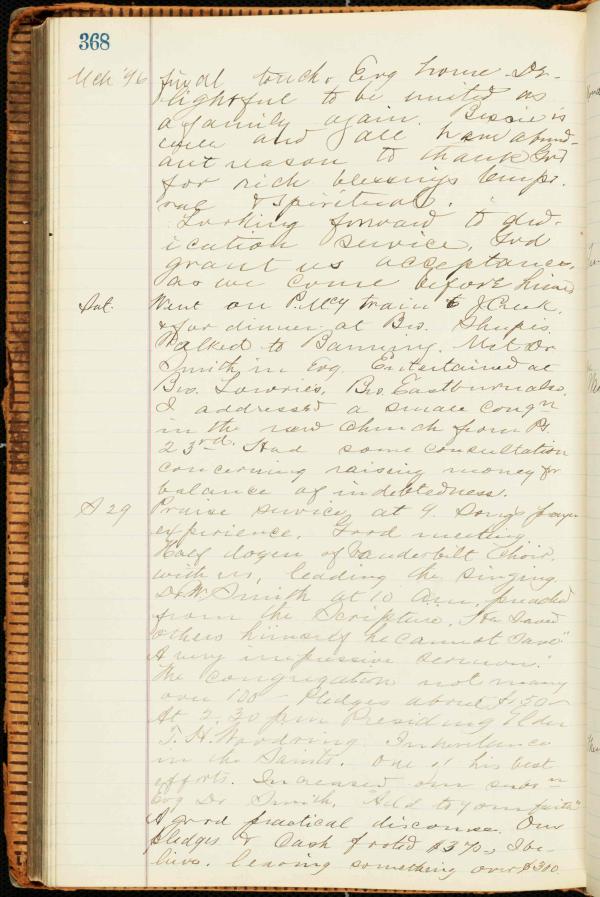 368
Mch '96 final touch. Evg home. De-
lightful to be united as
a family again. Bessie is
well and all have abund-
ant reason to thank God
for rich blessings tempo-
ral & spiritual.
Looking forward to ded-
ication service. God
grant us acceptance,
as we come before him
Sat. Went on P. McY train to J. Creek.
& for dinner at Bro. Shupis.
Walked to Banning. Met Dr
Smith in Evg. Entertained at
Bro. Lowries. Bro. Eastburn also.
I addressed a small congn
in the new church from Ps.
23rd. Had some consultation
concerning raising money for
balance of indebtedness.
S 29 Praise service at 9. Song, prayer
experience. Good meeting.
Half dozen of Vanderbilt Choir
with us, leading the singing
Dr W. Smith at 10 a.m. preached
from the Scripture. "He saved
others himself he cannot save"
A very impressive sermon.
The congregation not many
over 100 – Pledges about $150–
At 2.30 pm Presiding Elder
T. H. Woodring Inheritance
in the Saints. One of his best
efforts. Increased our
Evg Dr Smith. "Add to your faith"
A good practical discourse. Our
pledges & cash footed $370, I be-
lieve. leaving something over $300